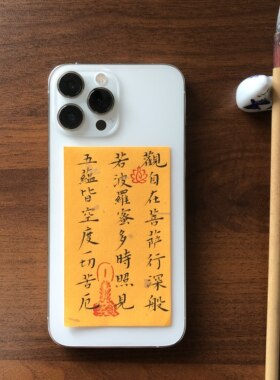 觀自在菩薩行深般
若波羅蜜多時照見
五蘊皆空度一切苦厄